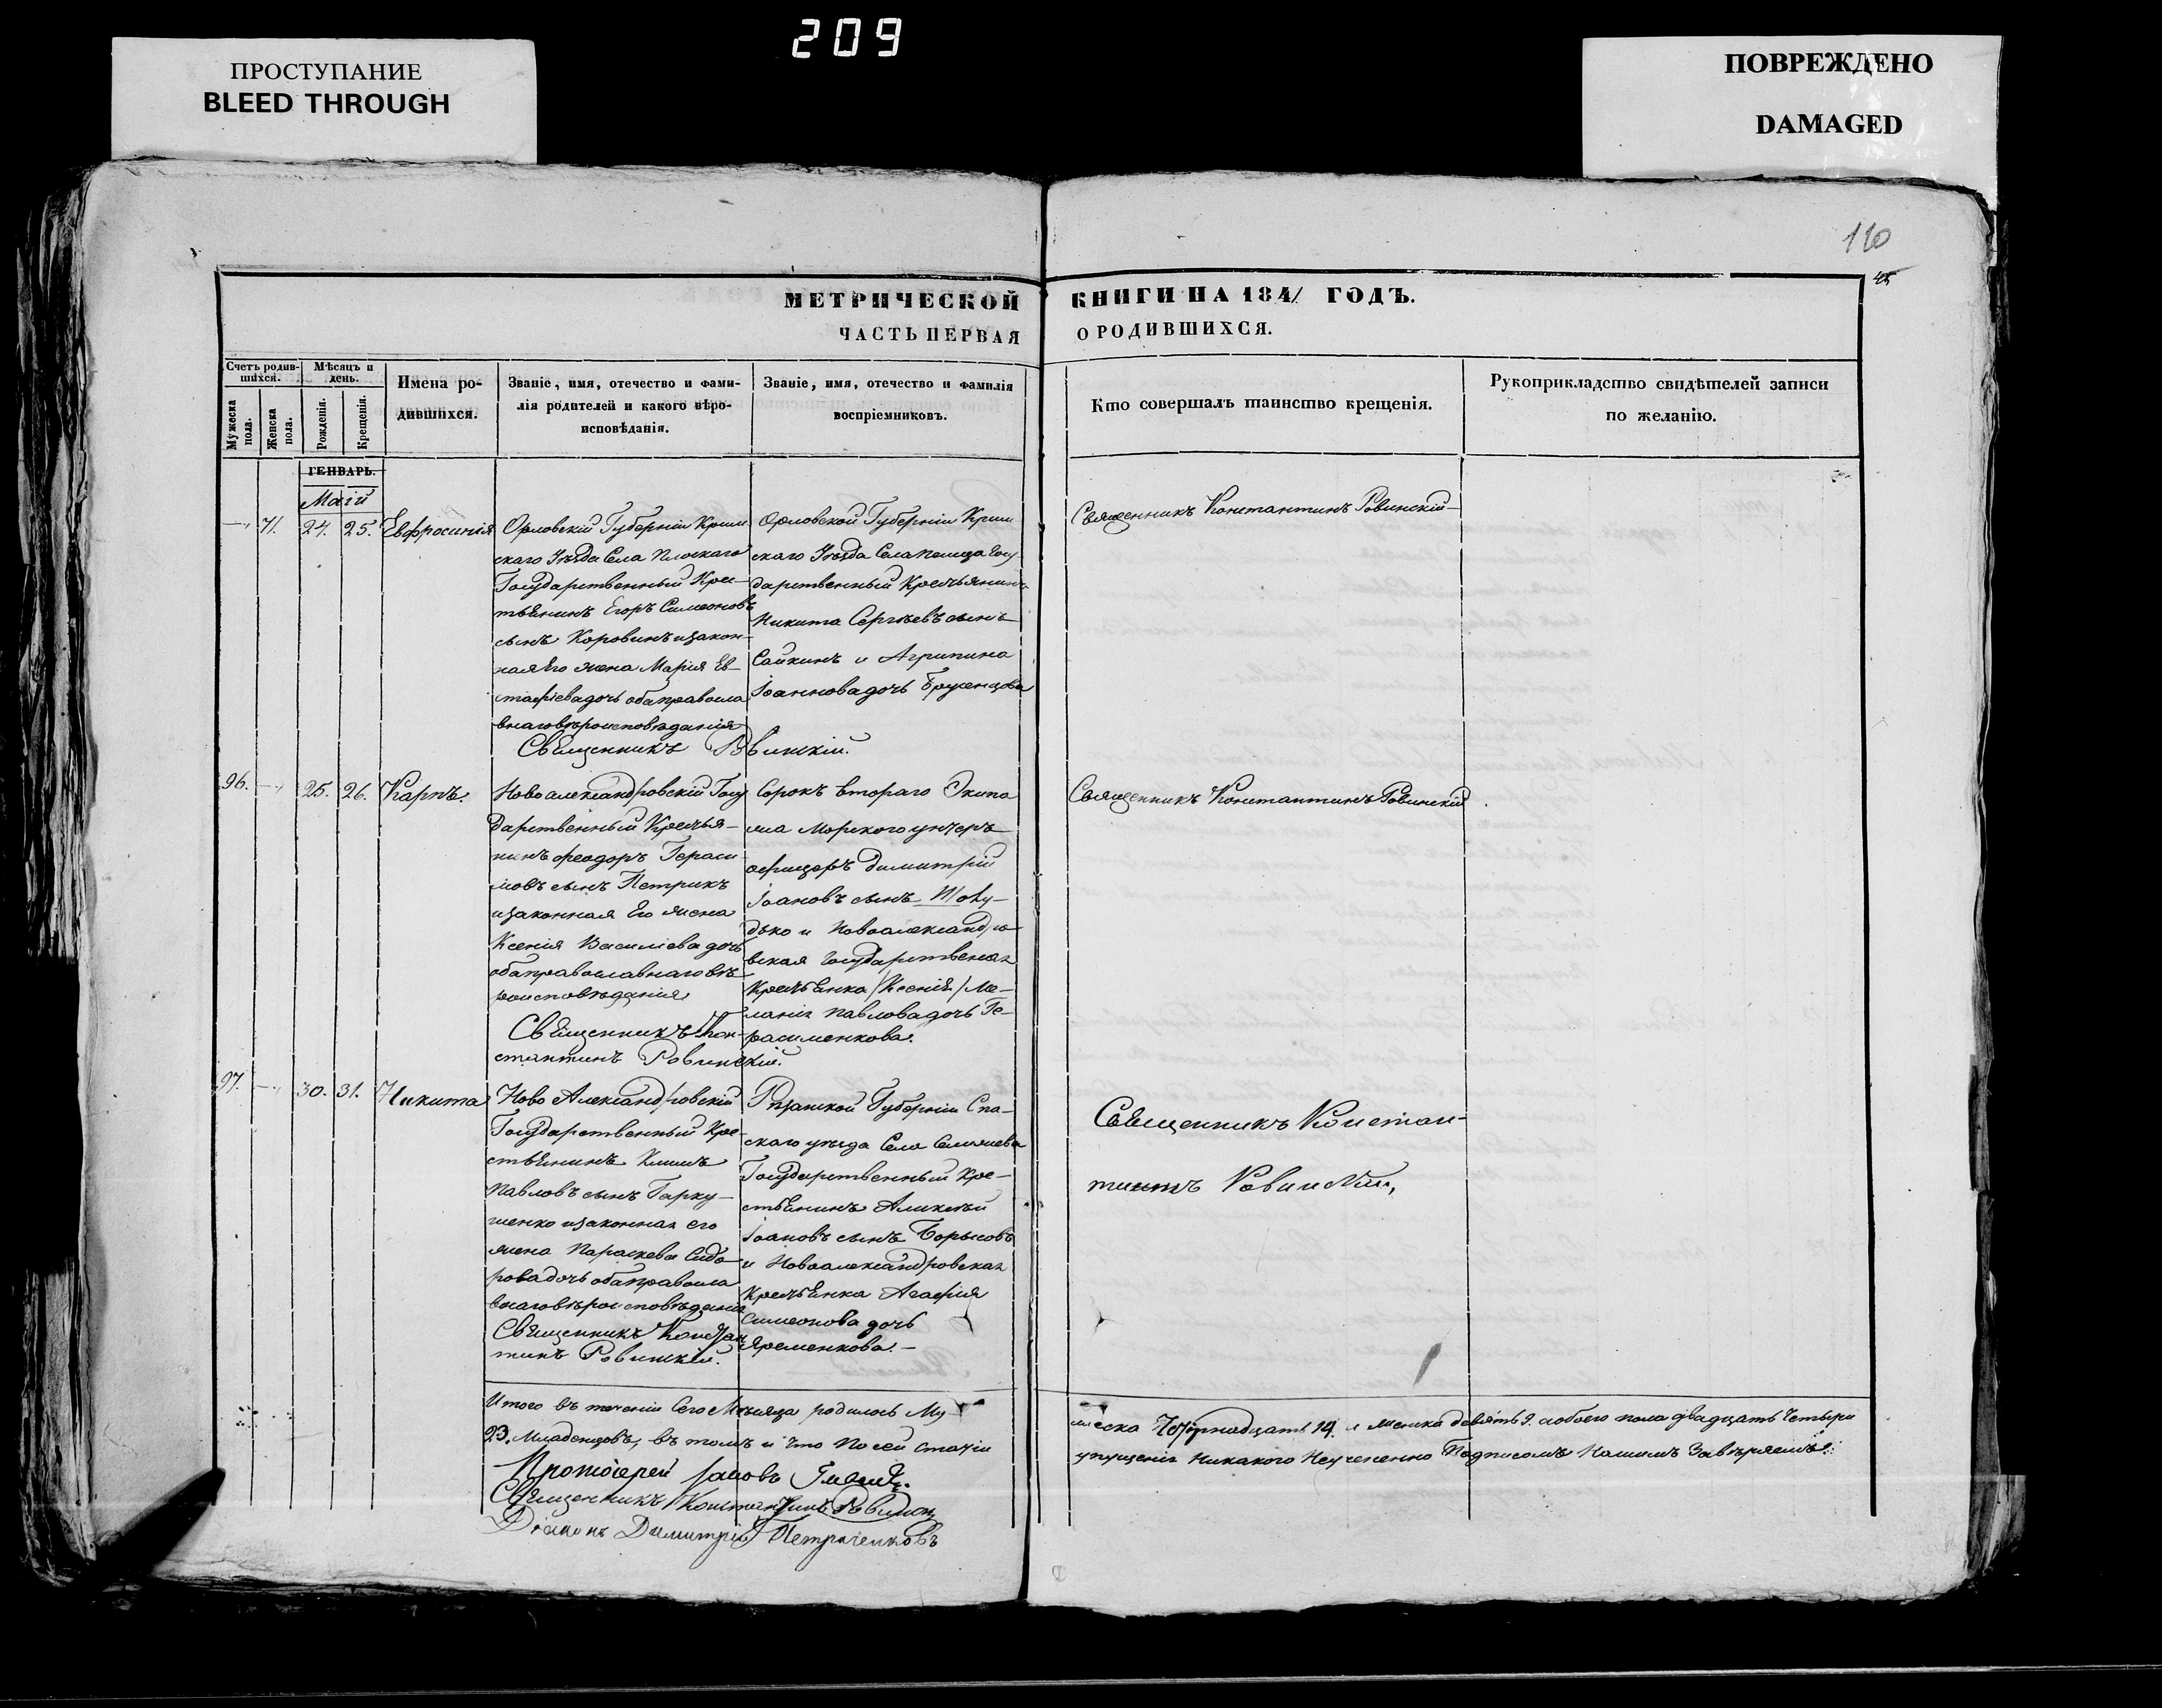 209
ПРОСТУПАНИЕ
BLEED THROUGH
ПОВРЕЖДЕНО
DAMAGED
110
45
МЕТРИЧЕСКОЙ КНИГИ НА 1841 ГОДЪ.
ЧАСТЬ ПЕРВАЯ О РОДИВШИХСЯ.
Счетъ родившихся.
Мужеска пола.
Женска пола.
Мѣсяцъ и день.
Рожденія.
Крещенія.
Имена родившихся.
Званіе, имя, отечество и фамилія родителей и какого вѣроисповѣданія.
Званіе, имя, отечество и фамилія воспріемниковъ.
Кто совершалъ таинство крещенія.
Рукоприкладство свидѣтелей записи по желанію.
ГЕНВАРЬ.
Маій
71. 24. 25. Евфросинія
Орловскій Губерніи Кром
скаго Уѣзда Села Плоскаго
Государственный Крес-
тьянинъ Егоръ Симеоновъ
сынъ Коровинъ и закон-
ная Его жена Марія Ев-
стафіева дочь оба правосла
внаго вѣроисповѣданія
Священникъ Рвинскій.
Орловской Губерніи Кром
скаго Уѣзда Села Госу
дарственный Крестьянинъ
Никита Сергѣевъ сынъ
Сайкинъ и Агрипина
Іоаннова дочь
Священникъ Константинъ Ровинскій
96. 25. 26. Карпъ.
Новоалександровскій Госу
дарственный Крестья-
нинъ Феодоръ Гераси
мовъ сынъ Петрикъ
и законная Его жена
Ксенія Василіева дочь
оба православнаго вѣ-
роисповѣданія
Священникъ Кон-
стантинъ Ровинскій.
Сорокъ втораго Экипа
жа Морскаго унтеръ
офицеръ Димитрій
Іоановъ сынъ
дько и Новоалександро
вская Государственая
Крестьянка /Ксенія/ Ме-
ланія Павлова дочь Ге-
расименкова.
Священникъ Константинъ Ровинскій
97. 30. 31. Никита
Ново Александровскій
Государственный Кре-
стьянинъ Климъ
Павловъ сынъ Гарку-
шенко и законная его
жена Параскева Сидо
рова дочь оба правосла
внаго вѣроисповѣданія
Священникъ Констан
тинъ Ровинскій.
Рязанской Губерніи Спа-
скаго уѣзда Села
Государственный Кре-
стьянинъ Алексѣй
Іоановъ сынъ Борысовъ
и Новоалександровская
Крестьянка Агафія
Симеонова дочь
Яременкова.
Священникъ Констан-
тинъ Ровинскій,
Итого въ теченіи Сего Мѣсяца родилось Му-
жеска Четырнадцать 14. и женска девять 9. а обоего пола двадцать четыри
23. Младенцовъ, въ томъ и что По сей статіи
упущенія Никакого Неучененно Подписомъ Нашимъ Завѣряемъ:
Протоіерей Іаковъ
Священникъ Константинъ Ровинскій
Діаконъ Димитрій Петраченковъ